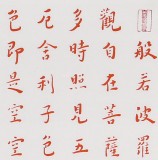 般若波羅
觀自在菩薩
多時照見五
厄舍利子色
色即是空空